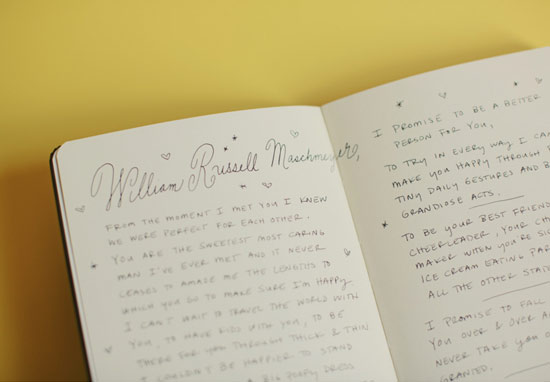 William Russell Maschmeyer,
FROM THE MOMENT I MET YOU I KNEW
WE WERE PERFECT FOR EACH OTHER.
YOU ARE THE SWEETEST MOST CARING
MAN I'VE EVER MET AND IT NEVER
CEASES TO AMAZE ME THE LENGTHS TO
WHICH YOU GO TO MAKE SURE I'M HAPPY.
I CAN'T WAIT TO TRAVEL THE WORLD WITH
YOU, TO HAVE KIDS WITH YOU, TO BE
THERE FOR YOU THROUGH THICK & THIN.
I COULDN'T BE HAPPIER TO STAND
A BIG POOFY DRESS
I PROMISE TO BE A BETTER
PERSON FOR YOU,
TO TRY IN EVERY WAY I CA
MAKE YOU HAPPY THROUGH
TINY DAILY GESTURES AND B
GRANDIOSE ACTS.
TO BE YOUR BEST FRIEND
CHEERLEADER, YOUR
MAKER WHEN YOU'RE SI
ICE CREAM EATING PAR
ALL THE OTHER STA
I PROMISE TO FALL
YOU OVER & OVER A
NEVER TAKE YOU
GRANTED.